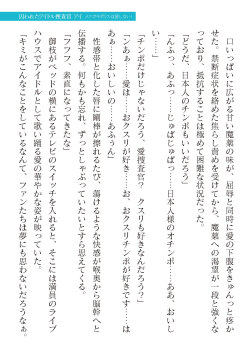 囚われたアイドル捜査官 アイ
口いっぱいに広がる甘い魔薬の味が、屈辱と同時に愛の下腹をきゅんっと疼か
せた。禁断症状を絶めた焦らし責めを受け続けてきたせいで、魔薬への渇望が一段と強くな
っており、抵抗することは極めて困難な状況だった。
「どうだ、日本人のチンポもいいだろう」
「んふっ、あふっ……じゅばじゅばっ……日本人様のオチンポ……ああ、おいし
い……」
「チンポだけじゃないだろう、愛捜査官？ クスリ好きなんだろう？」
「ンあぁ……愛は……おクスリが好き……お、おクスリチンポが好きです……は
あ、おいしいの……あぁうん」
性感帯と化した唇に剛棒が擦れるたび、蕩けるような快感が喉奥から脳幹へと
伝播する。何もかも忘れ、ずっとしゃぶっていたいとすら思えてくる。
「フフフ、素直になってきたな」
御枝がベッドの横にあるテレビのスイッチを入れると、そこには満員のライブ
ハウスでアイドルとして歌い踊る愛の華やかな姿が映っていた。
「キミがこんなことをしているなんて、ファンたちは夢にも思わないだろうなぁ。